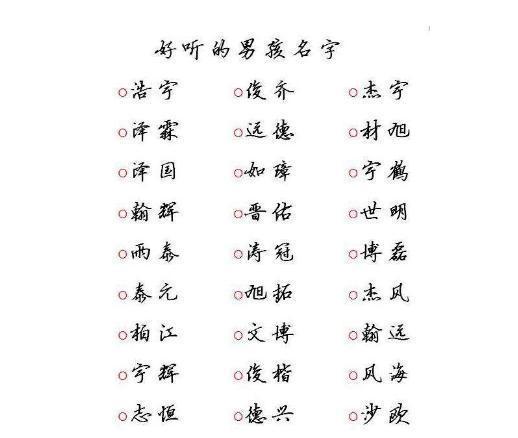 好听的男孩名字
浩宇 俊齐 杰宇
泽霖 远德 材旭
泽国 如璋 宇鹤
翰辉 晋佑 世明
雨泰 涛冠 博磊
泰元 旭拓 杰风
柏江 文博 翰远
宇辉 俊楷 风海
志恒 德兴 沙欧